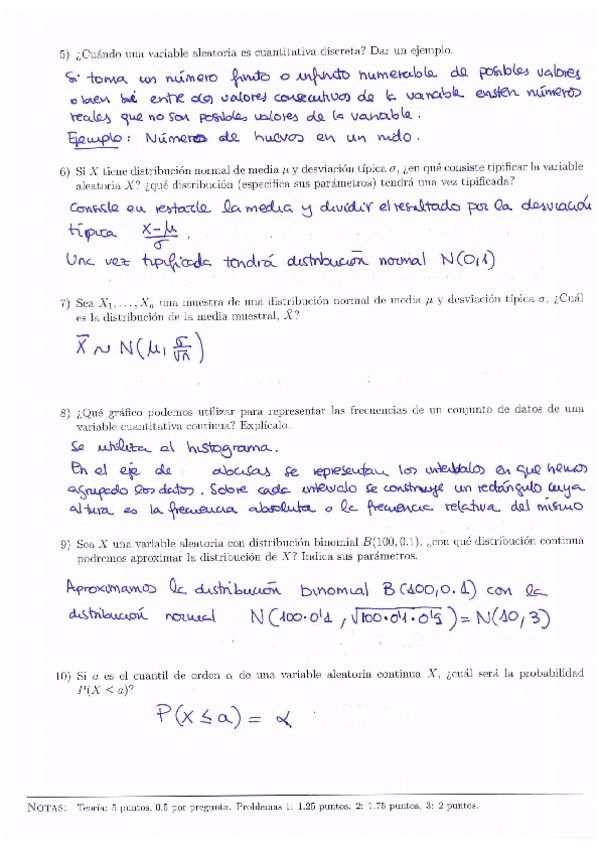 5) ¿Cuándo una variable aleatoria es cuantitativa discreta? Dar un ejemplo.
Si toma un número finito o infinito numerable de posibles valores
o bien si entre dos valores consecutivos de la variable existen números
reales que no son posibles valores de la variable.
Ejemplo: Número de huevos en un nido.
6) Si X tiene distribución normal de media μ y desviación típica σ, ¿en qué consiste tipificar la variable
aleatoria X? ¿qué distribución (especifica sus parámetros) tendrá una vez tipificada?
Consiste en restarle la media y dividir el resultado por la desviación
típica (X-μ)/σ.
Una vez tipificada tendrá distribución normal N(0,1)
7) Sea X₁, . . . , Xₙ una muestra de una distribución normal de media μ y desviación típica σ, ¿Cuál
es la distribución de la media muestral, X̄?
X̄ ~ N(μ, σ/√n)
8) ¿Qué gráfico podemos utilizar para representar las frecuencias de un conjunto de datos de una
variable cuantitativa continua? Explícalo.
Se utiliza el histograma.
En el eje de abcisas se representan los intervalos en que hemos
agrupado los datos. Sobre cada intervalo se construye un rectángulo cuya
altura es la frecuencia absoluta o la frecuencia relativa del mismo
9) Sea X una variable aleatoria con distribución binomial B(100, 0.1), ¿con qué distribución continua
podremos aproximar la distribución de X? Indica sus parámetros.
Aproximamos la distribución binomial B(100,0.1) con la
distribución normal N(100·0'1, √100·0'1·0'9) = N(10,3)
10) Si a es el cuantil de orden α de una variable aleatoria continua X, ¿cuál será la probabilidad
P(X < a)?
P(X ≤ a) = α
NOTAS: Teoría: 5 puntos, 0.5 por pregunta. Problemas 1: 1.25 puntos. 2: 1.75 puntos. 3: 2 puntos.